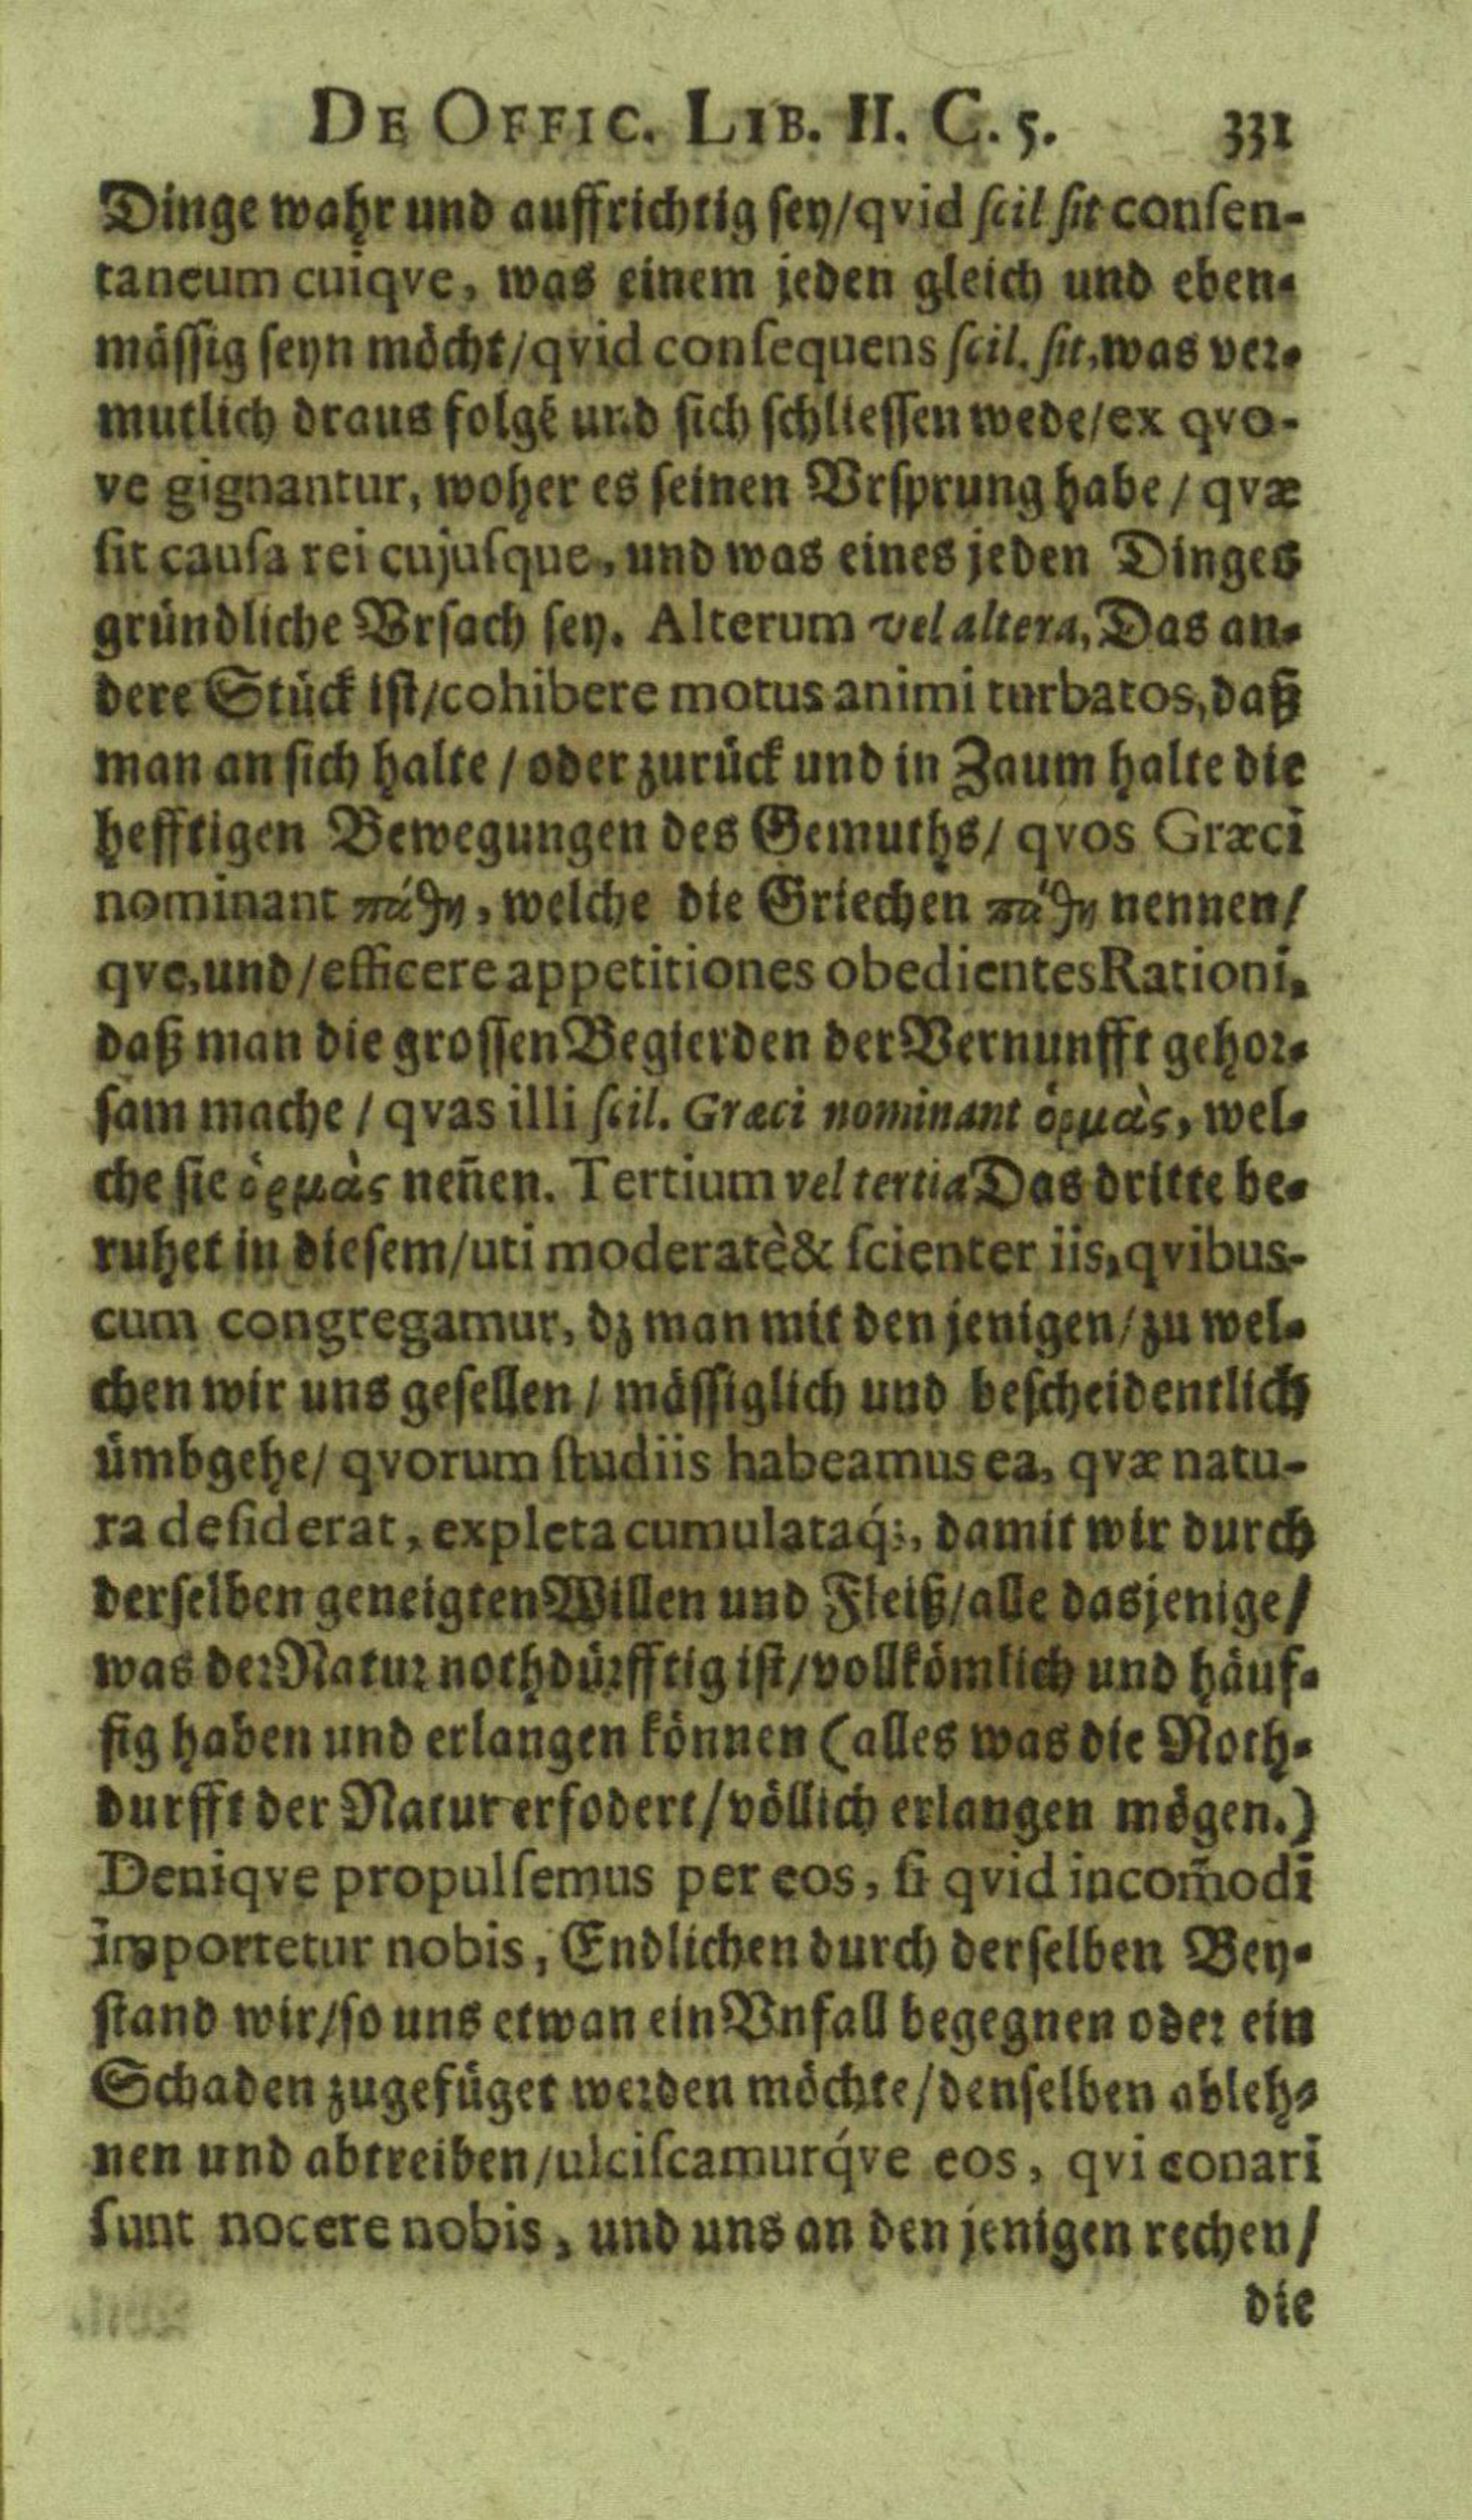 DE OFFIC. LIB. II. C. 5. 331
Dinge wahr und auffrichtig sey/qvid scil sit consen-
taneum cuiqve, was einem jeden gleich und eben-
mässig seyn möcht/qvid consequens scil. sit, was ver-
mutlich draus folgē und sich schliessen wede/ex qvo-
ve gignantur, woher es seinen Vrsprung habe / qvæ
sit causa rei cujusque, und was eines jeden Dinges
gründliche Vrsach sey. Alterum vel altera, Das an-
dere Stück ist/cohibere motus animi turbatos, daß
man an sich halte / oder zurück und in Zaum halte die
hefftigen Bewegungen des Gemuths/ qvos Græci
nominant πάθη, welche die Griechen πάθη nennen/
qve, und/efficere appetitiones obedientes Rationi,
daß man die grossen Begierden der Vernunfft gehor-
sam mache / qvas illi scil. Græci nominant ὁρμὰς, wel-
che sie ὁρμὰς neñen. Tertium vel tertia Das dritte be-
ruhet in diesem/uti moderatè & scienter iis, qvibus-
cum congregamur, dz man mit den jenigen/zu wel-
chen wir uns gesellen / mässiglich und bescheidentlich
ümbgehe/ qvorum studiis habeamus ea, qvæ natu-
ra desiderat, expleta cumulataq́;, damit wir durch
derselben geneigten Willen und Fleiß/alle dasjenige/
was der Natur nothdürfftig ist/vollkömlich und häuf-
fig haben und erlangen können (alles was die Noth-
durfft der Natur erfodert/völlich erlangen mögen.)
Deniqve propulsemus per eos, si qvid incom̃odi
importetur nobis, Endlichen durch derselben Bey-
stand wir/so uns etwan ein Vnfall begegnen oder ein
Schaden zugefüget werden möchte/denselben ableh-
nen und abtreiben/ulciscamurq́ve eos, qvi conari
sunt nocere nobis, und uns an den jenigen rechen/
die